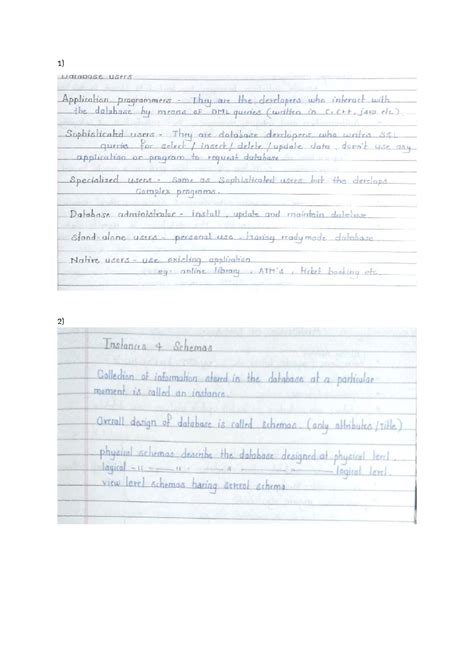 1)
Database users
Application programmers - They are the developers who interact with
the database by means of DML queries (written in C, C++, java etc).
Sophisticated users - They are database developers who writes SQL
queries for select / insert / delete / update data, don't use any
application or program to request database
Specialized users - Same as Sophisticated users but the
Complex programs.
Database administrator - install, update and maintain database
Stand alone users - personal use, having readymade database
Native users - use existing application
eg: online library, ATM's, ticket booking etc.
2)
Instances & Schemas
Collection of information stored in the database at a particular
moment is called an instance.
Overall design of database is called schemas. (only attributes / title)
physical schemas describe the database designed at physical level.
logical -"- -"- logical level.
view level schemas having several schema